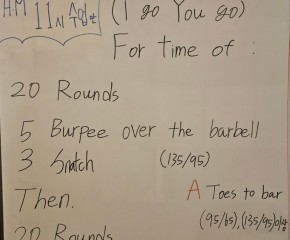 AM 11시 수업 (I go You go)
For time of :
20 Rounds
5 Burpee over the barbell
3 Snatch (135/95)
Then.
A Toes to bar
(95/65), (135/95)이상
20 Rounds